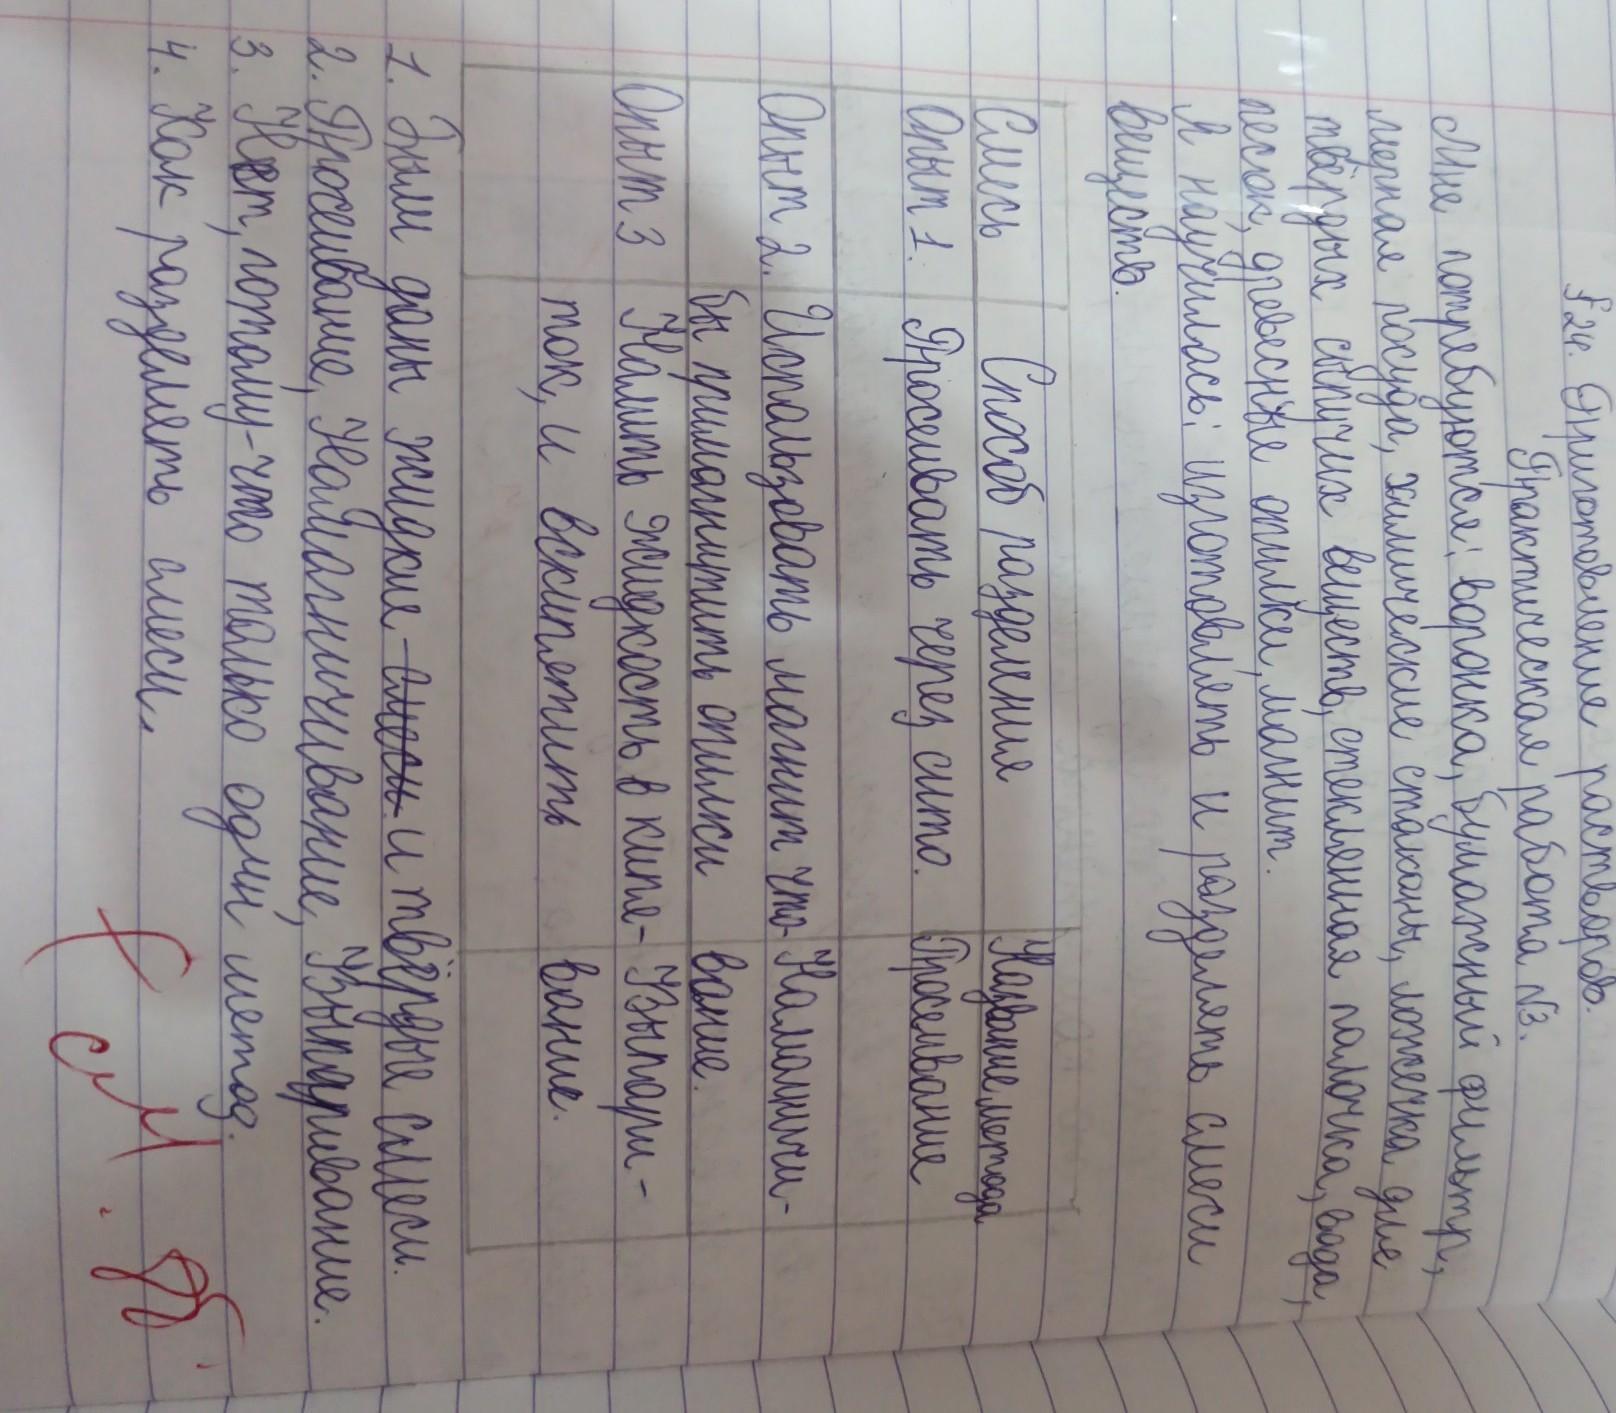 §24. Приготовление растворов.
Практическая работа №3.
Мне потребуются: воронка, бумажный фильтр,
мерная посуда, химические стаканы, ложечка для
твёрдых сыпучих веществ, стеклянная палочка, вода,
песок, древесные опилки, магнит.
Я научилась: изготовлять и разделять смеси
веществ.
Смесь Способ разделения Название метода
Опыт 1. Просеивать через сито. Просеивание
Опыт 2. Использовать магнит что- Намагничи-
бы примагнитить опилки вание.
Опыт 3 Налить жидкость в кипе- Выпари-
ток, и вскипятить вание.
1. Были даны жидкие и твёрдые смеси.
2. Просеивание, Намагничивание, Выпаривание.
3. Нет, потому-что только один метод.
4. Как разделять смеси.
см.